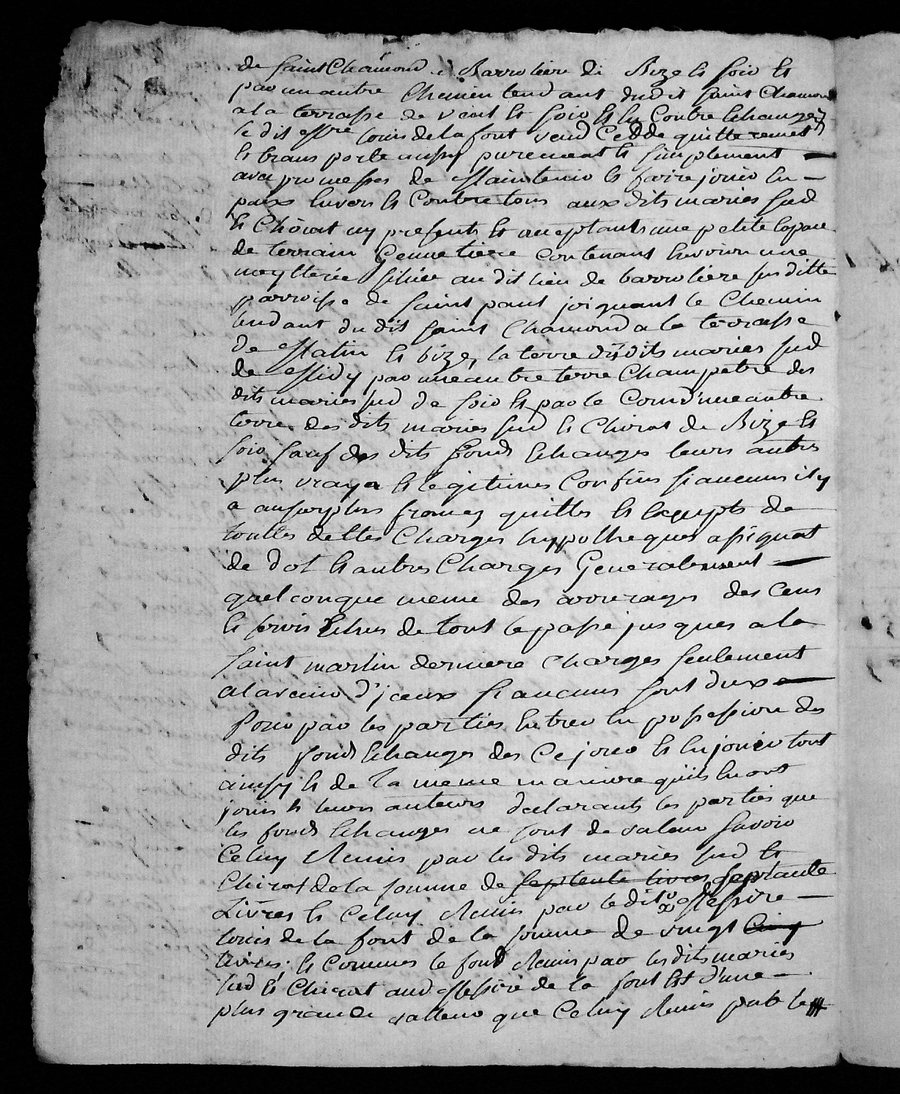 de saint Chamond a Barroliere de Bize et soir et
par un autre Chemin tendant du dit saint Chamond
a la terrasse de vent et soir et en Contre Echange
le dit messire louis de la font vend Cedde quitte remet
et transporte aussy purement et simplement
avec promesses de Maintenir et faire jouir en
paix Envers et Contre tous aux dits maries sud
et Chirat icy presents et acceptants une petite Espace
de terrain Genetiere contenant Environ une
meytteree située au dit lieu de barroliere susditte
parroisse de saint paul joignant le Chemin
tendant du dit saint Chamond a la terrasse
de Matin et bize, la terre desdits maries sud
de Midy par une autre terre Champetre des
dits maries sud de soir et par le Coin d'une autre
terre des dits maries sud et Chirat de Bize et
soir sauf des dits fonds Echangés leurs autres
plus vrays et légitimes Confins si aucuns il y
a au surplus francs quittes et Exempts de
touttes dettes Charges hyppotheques assignat
de dot et autres Charges Generalement
quelconque meme des arrerages des Cens
et servis Echus de tout le passé jusques a la
saint martin derniere charges seulement
a l'avenir d'iceux si aucuns sont dux
Pour par les parties Entrer en possession des
dits fonds Echanges des Ce jour et en jouir tout
ainsy et de la meme maniere qu'ils En ont
jouis et leurs auteurs declarants les parties que
les fonds Echanges ne sont de valeur savoir
Celuy Remis par les dits maries sud et
Chirat de la somme de septente livres septante
Livres et Celuy Remis par le dit Messire
louis de la font de la somme de vingt Cinq
livres, et Comme le fond Remis par les dits maries
sud et Chirat aud Messire de la font Est d'une
plus grande valleur que Celuy Remis par le